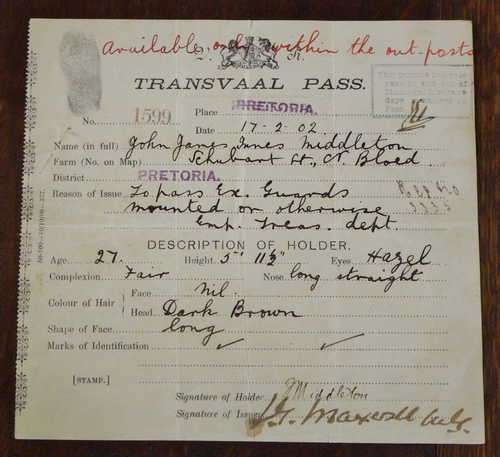 Available only within the out posts
TRANSVAAL PASS.
No. 1599 Place PRETORIA.
Date 17-2-02
Name (in full) John James Innes Middleton
Farm (No. on Map) Schubart St., N. Bloed
District PRETORIA.
Reason of Issue To pass Ex. Guards
mounted or otherwise
Emp. Treas. dept.
DESCRIPTION OF HOLDER.
Age 27. Height 5' 11½" Eyes Hazel
Complexion Fair Nose long straight
Colour of Hair Face nil.
Head Dark Brown
Shape of Face long
Marks of Identification
[STAMP.]
Signature of Holder JMiddleton
Signature of Issuer J.G. Maxwell